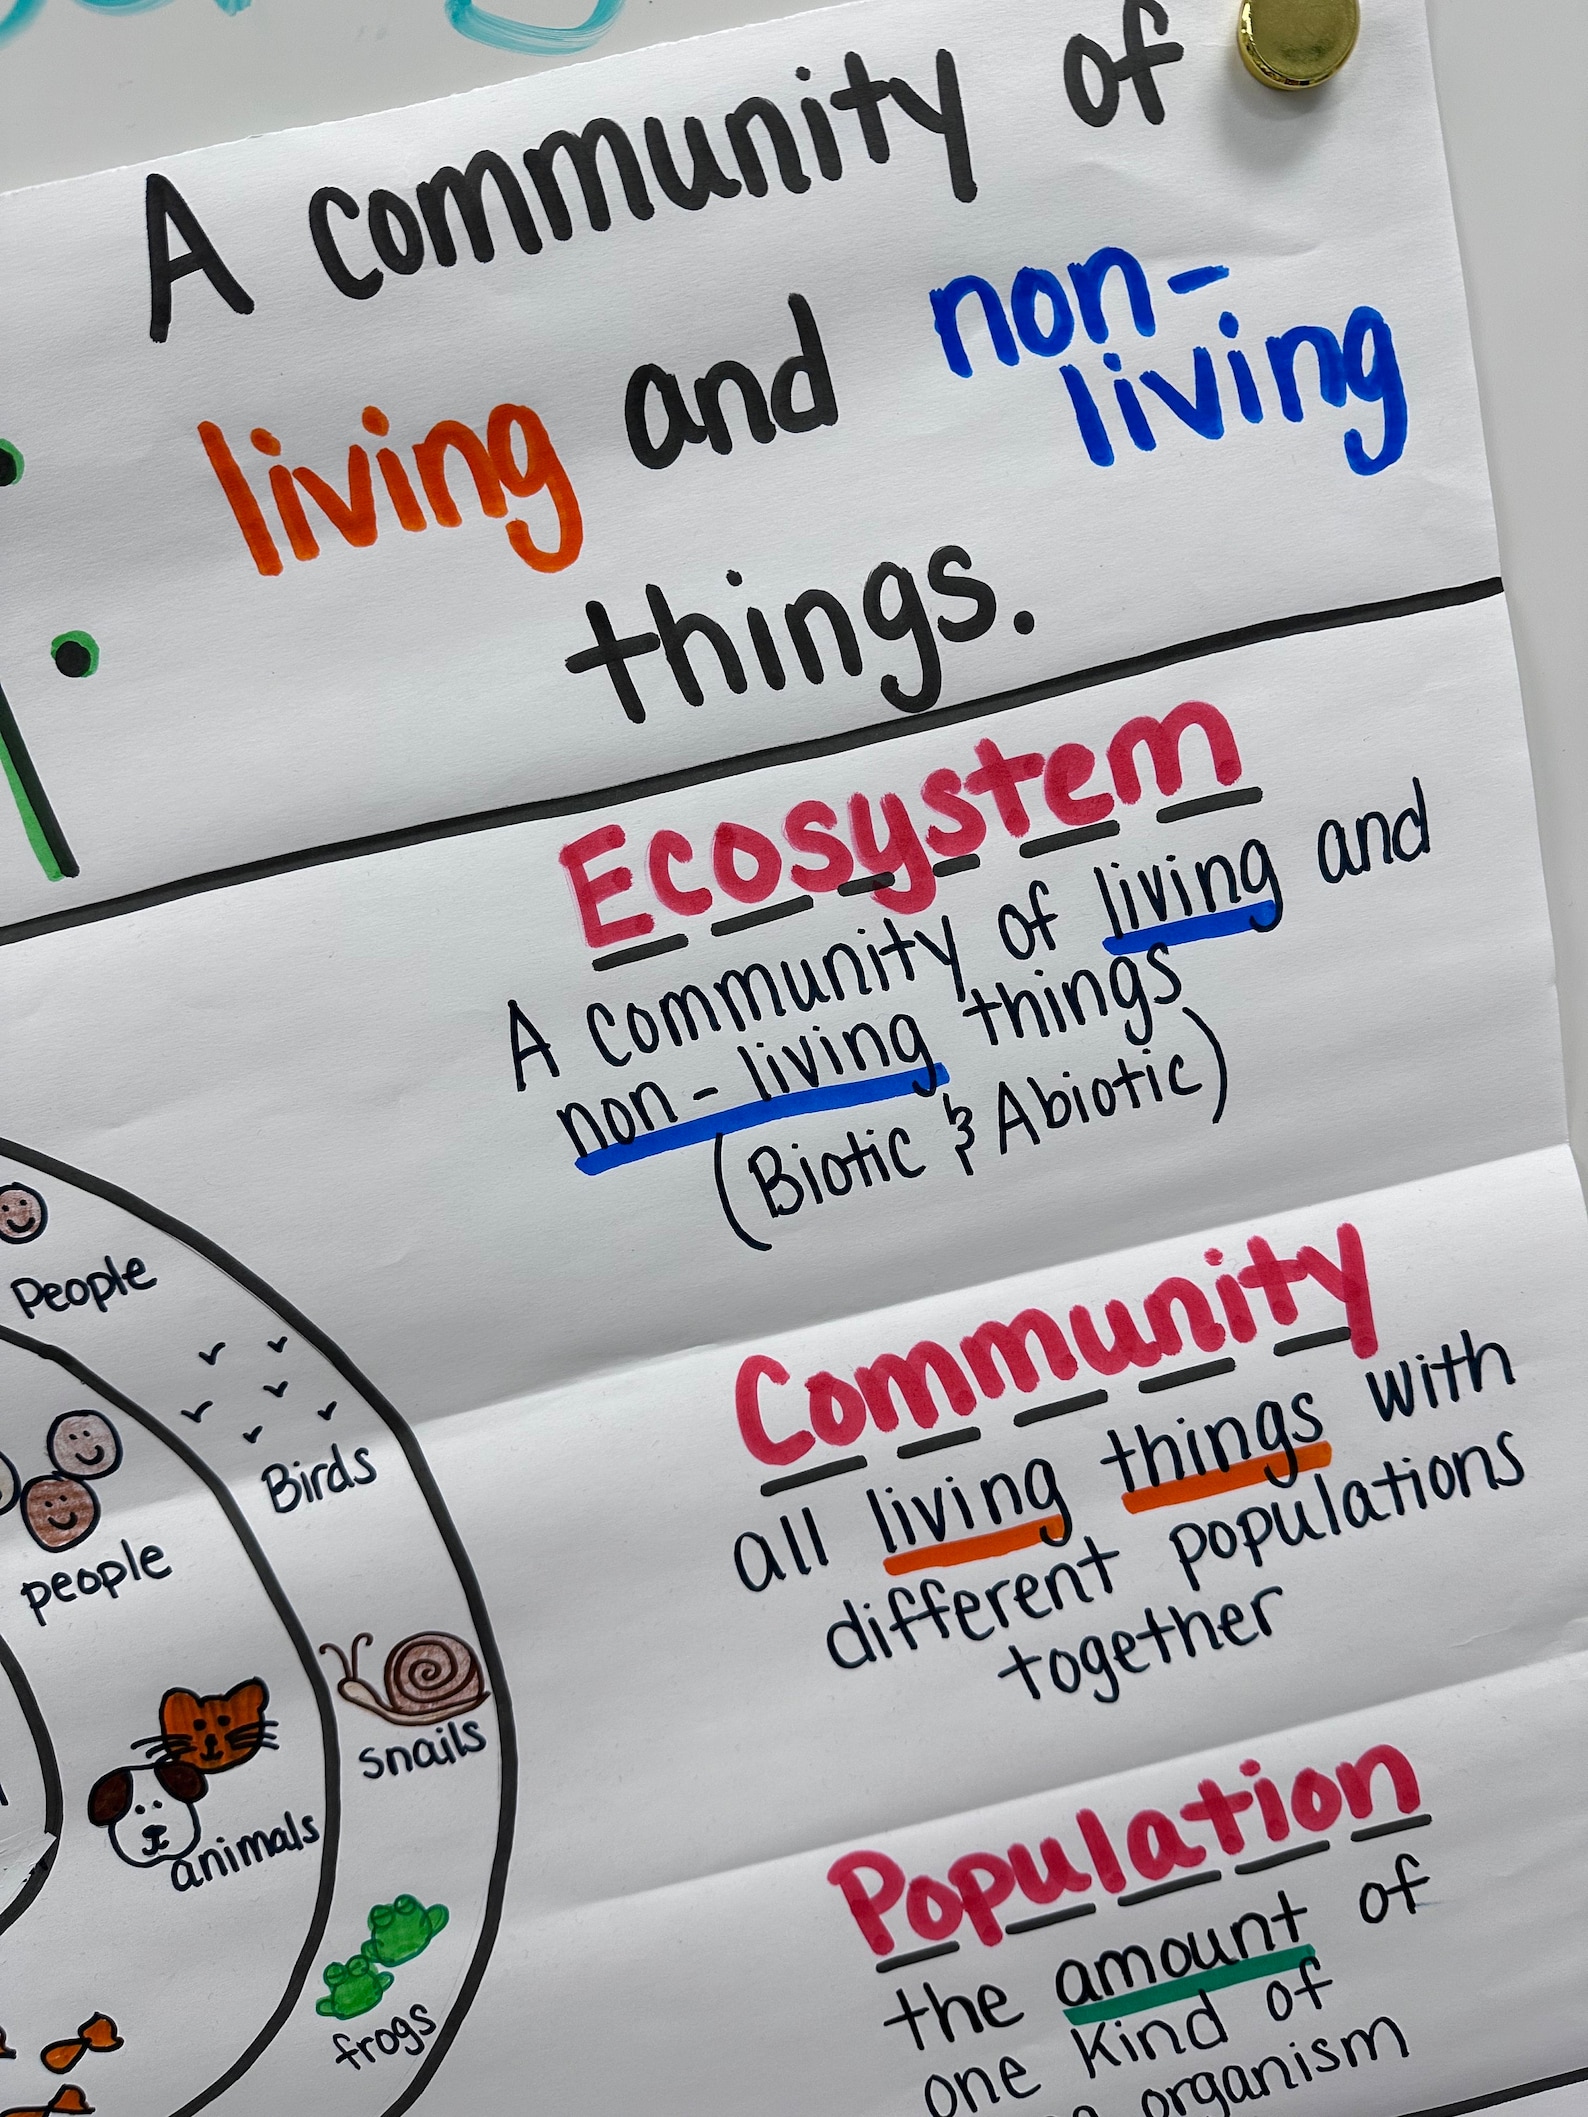 A community of
living and non-
living
things.
Ecosystem
A community of living and
non-living things
(Biotic & Abiotic)
Community
all living things with
different populations
together
Population
the amount of
one kind of
organism
People
Birds
people
snails
animals
frogs